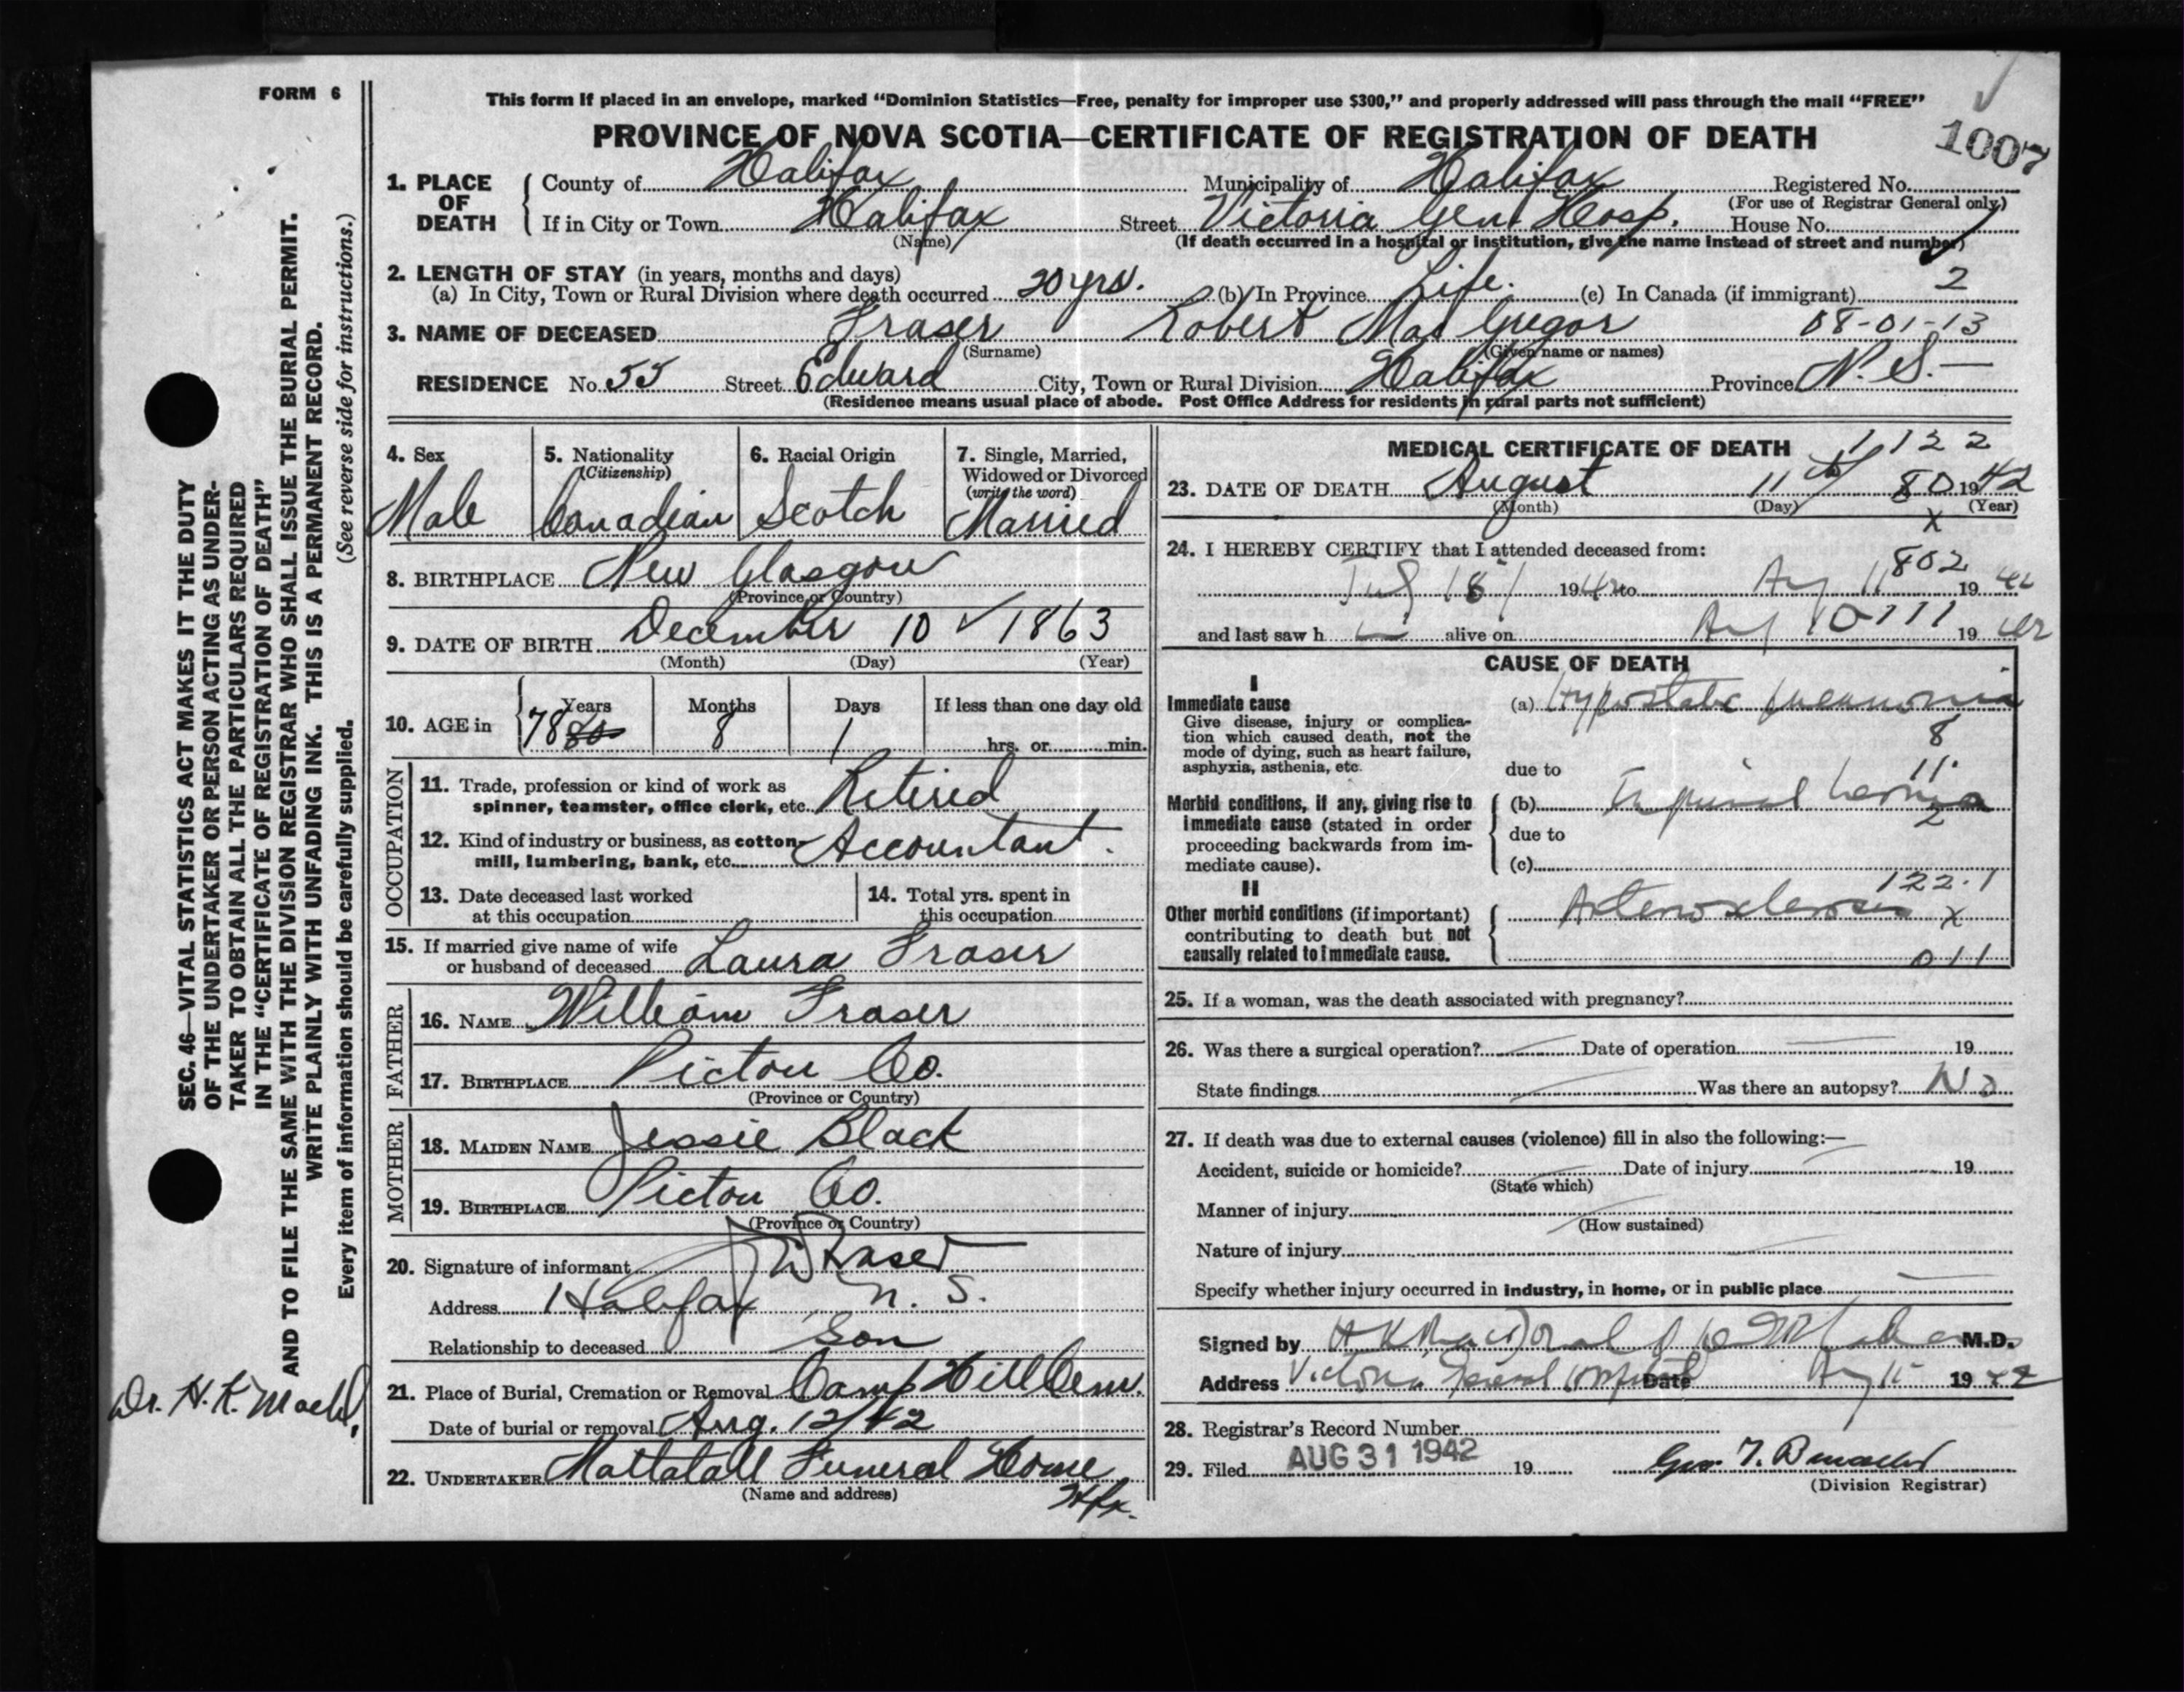 FORM 6
This form if placed in an envelope, marked "Dominion Statistics—Free, penalty for improper use $300," and properly addressed will pass through the mail "FREE"
PROVINCE OF NOVA SCOTIA—CERTIFICATE OF REGISTRATION OF DEATH
1007
1. PLACE OF DEATH
County of Halifax Municipality of Halifax Registered No.
(For use of Registrar General only)
If in City or Town Halifax Street Victoria Gen Hosp. House No.
(Name) (If death occurred in a hospital or institution, give the name instead of street and number)
2. LENGTH OF STAY (in years, months and days)
(a) In City, Town or Rural Division where death occurred 20 yrs. (b) In Province Life. (c) In Canada (if immigrant) 2
3. NAME OF DECEASED Fraser Robert Mac Gregor 08-01-13
(Surname) (Given name or names)
RESIDENCE No. 55 Street Edward City, Town or Rural Division Halifax Province N.S.—
(Residence means usual place of abode. Post Office Address for residents in rural parts not sufficient)
4. Sex Male
5. Nationality (Citizenship) Canadian
6. Racial Origin Scotch
7. Single, Married, Widowed or Divorced (write the word) Married
8. BIRTHPLACE New Glasgow
(Province or Country)
9. DATE OF BIRTH December 10 ✓ 1863
(Month) (Day) (Year)
10. AGE in Years Months Days If less than one day old
78 80 8 1 hrs. or min.
OCCUPATION
11. Trade, profession or kind of work as
spinner, teamster, office clerk, etc. Retired
12. Kind of industry or business, as cotton-
mill, lumbering, bank, etc. Accountant.
13. Date deceased last worked
at this occupation
14. Total yrs. spent in
this occupation
15. If married give name of wife
or husband of deceased Laura Fraser
FATHER
16. NAME William Fraser
17. BIRTHPLACE Pictou Co.
(Province or Country)
MOTHER
18. MAIDEN NAME Jessie Black
19. BIRTHPLACE Pictou Co.
(Province or Country)
20. Signature of informant Fraser
Address Halifax, N. S.
Relationship to deceased Son
21. Place of Burial, Cremation or Removal Camp Hill Cem.
Date of burial or removal Aug. 12/42
22. UNDERTAKER Mattatall Funeral Home
(Name and address) Hfx.
MEDICAL CERTIFICATE OF DEATH 1122
23. DATE OF DEATH August 11th 80 1942
(Month) (Day) (Year)
X
24. I HEREBY CERTIFY that I attended deceased from:
802
18 1942 to Aug 11 19 42
and last saw h alive on Aug 10 111 19 42
CAUSE OF DEATH
I
Immediate cause
Give disease, injury or complica-
tion which caused death, not the
mode of dying, such as heart failure,
asphyxia, asthenia, etc.
(a) Hypostatic pneumonia
8
due to
11.
Morbid conditions, if any, giving rise to
immediate cause (stated in order
proceeding backwards from im-
mediate cause).
(b) Inguinal hernia
2
due to
(c)
II
122.1
Other morbid conditions (if important)
contributing to death but not
causally related to immediate cause.
Arteriosclerosis X
011
25. If a woman, was the death associated with pregnancy?
26. Was there a surgical operation? Date of operation 19
State findings Was there an autopsy? No
27. If death was due to external causes (violence) fill in also the following:—
Accident, suicide or homicide? Date of injury 19
(State which)
Manner of injury
(How sustained)
Nature of injury
Specify whether injury occurred in industry, in home, or in public place
Signed by H K MacDonald M.D.
Address Victoria General Hospital Date Aug 1942
28. Registrar's Record Number
29. Filed AUG 31 1942 19 Geo. T.
(Division Registrar)
SEC. 46—VITAL STATISTICS ACT MAKES IT THE DUTY
OF THE UNDERTAKER OR PERSON ACTING AS UNDER-
TAKER TO OBTAIN ALL THE PARTICULARS REQUIRED
IN THE "CERTIFICATE OF REGISTRATION OF DEATH"
AND TO FILE THE SAME WITH THE DIVISION REGISTRAR WHO SHALL ISSUE THE BURIAL PERMIT.
WRITE PLAINLY WITH UNFADING INK. THIS IS A PERMANENT RECORD.
Every item of information should be carefully supplied. (See reverse side for instructions.)
Dr. H. K. MacD,